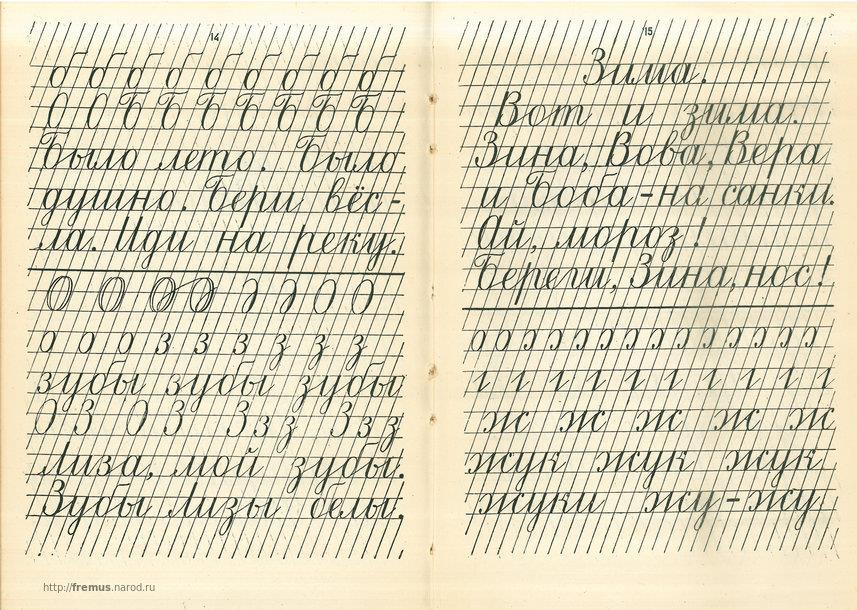 14
б б б б б б б б б
О О Б Б Б Б Б Б Б
Было лето. Было
душно. Бери вёс-
ла. Иди на реку.
о о о з з з з з з
зубы зубы зубы
О З О З З з з З з з
Лиза, мой зубы.
Зубы Лизы белы.
15
Зима.
Вот и зима.
Зина, Вова, Вера
и Боба - на санки.
Ай, мороз!
Береги, Зина, нос!
ж ж ж ж ж
жук жук жук
жуки жу - жу
http://fremus.narod.ru